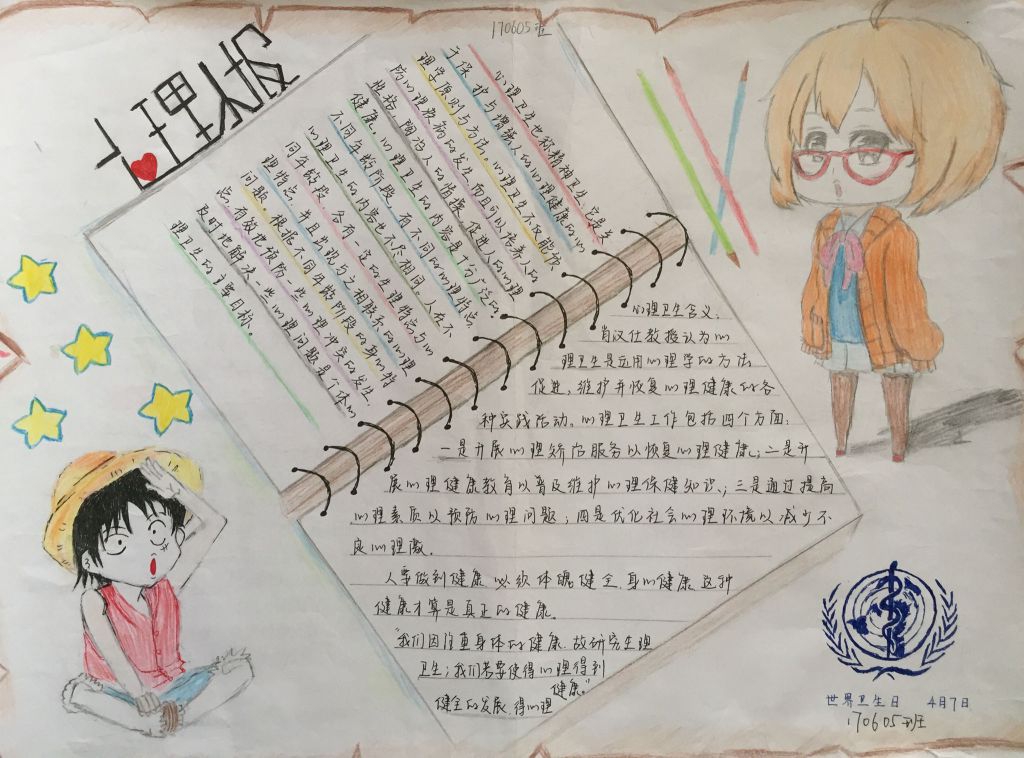 170605班
心理小报
心理卫生也称精神卫生,它是关
于保护与增强人的心理健康的心
理学原则与方法。心理卫生不仅能预
防心理疾病的发生,而且可以培养人的
性格,陶冶人的情操,促进人的心理
健康。心理卫生的内容是十分广泛的,
不同年龄阶段,有不同的心理特点,
心理卫生的内容也不尽相同。人在不
同年龄段,各有一定的生理特点与心
理特点,并且出现与之相联系的心理
问题。根据不同年龄阶段的身心特
点,有效地预防一些心理冲突的发生,
及时地解决一些心理问题是个体心
理卫生的主要目标。
心理卫生含义:
肖汉仕教授认为心
理卫生是运用心理学的方法
促进、维护并恢复心理健康的各
种实践活动。心理卫生工作包括四个方面:
一是开展心理矫治服务以恢复心理健康;二是开
展心理健康教育以普及维护心理保健知识;三是通过提高
心理素质以预防心理问题;四是优化社会心理环境以减少不
良心理激。
人要做到健康 必须体魄健全.身心健康.这种
健康才算是真正的健康。
"我们因注重身体的健康.故研究生理
卫生;我们若要使得心理得到
健全的发展,得心理
健康。"
世界卫生日 4月7日
170605班